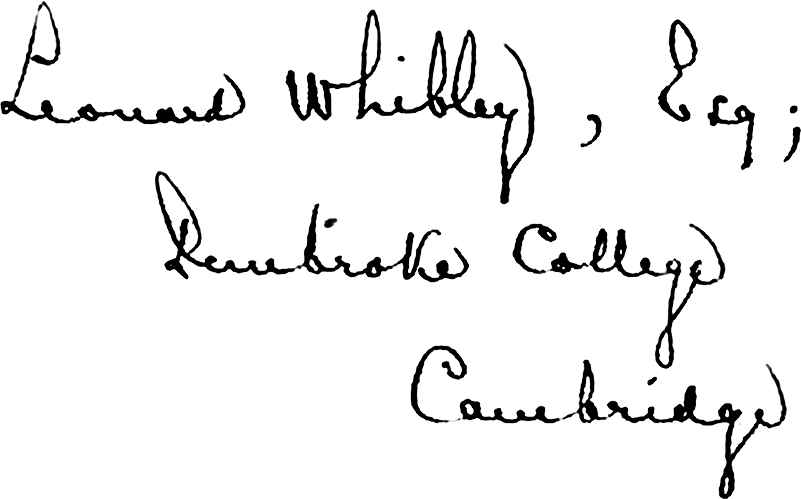 Leonard Whibley, Esq;
Pembroke College
Cambridge